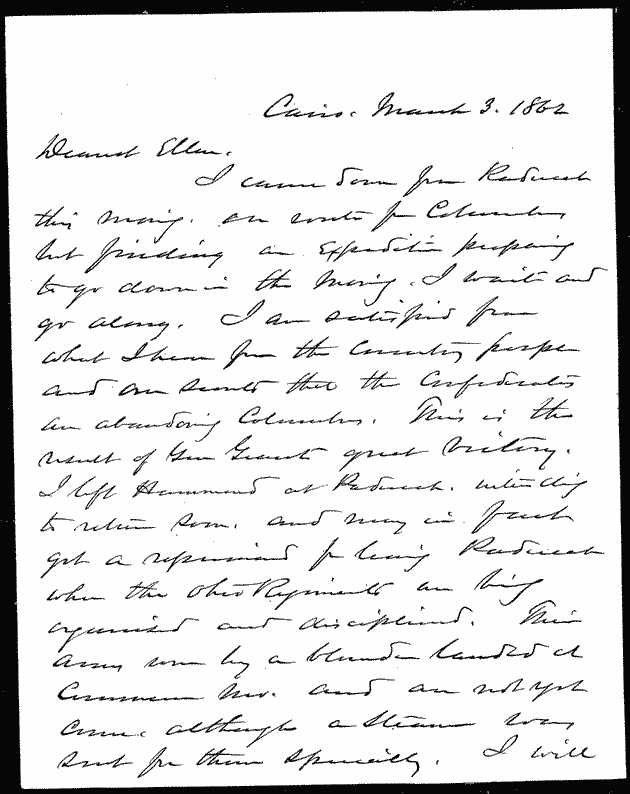 Cairo. March 3. 1862
Dearest Ellen.
I came down from Paducah
this morning. en route for Columbus
but finding an Expedition preparing
to go down in the morning. I wait and
go along. I am satisfied from
what I hear from the Country people
and our scouts that the Confederates
are abandoning Columbus. This is the
result of Gen Grants great victory.
I left Hammond at Paducah. intending
to return soon. and may in fact
get a reprimand for leaving Paducah
when the Ohio Regiments are being
organised and disciplined. Their
arms were by a blunder landed at
Commerce Mo. and are not yet
come. although a Steamer was
sent for them specially. I will